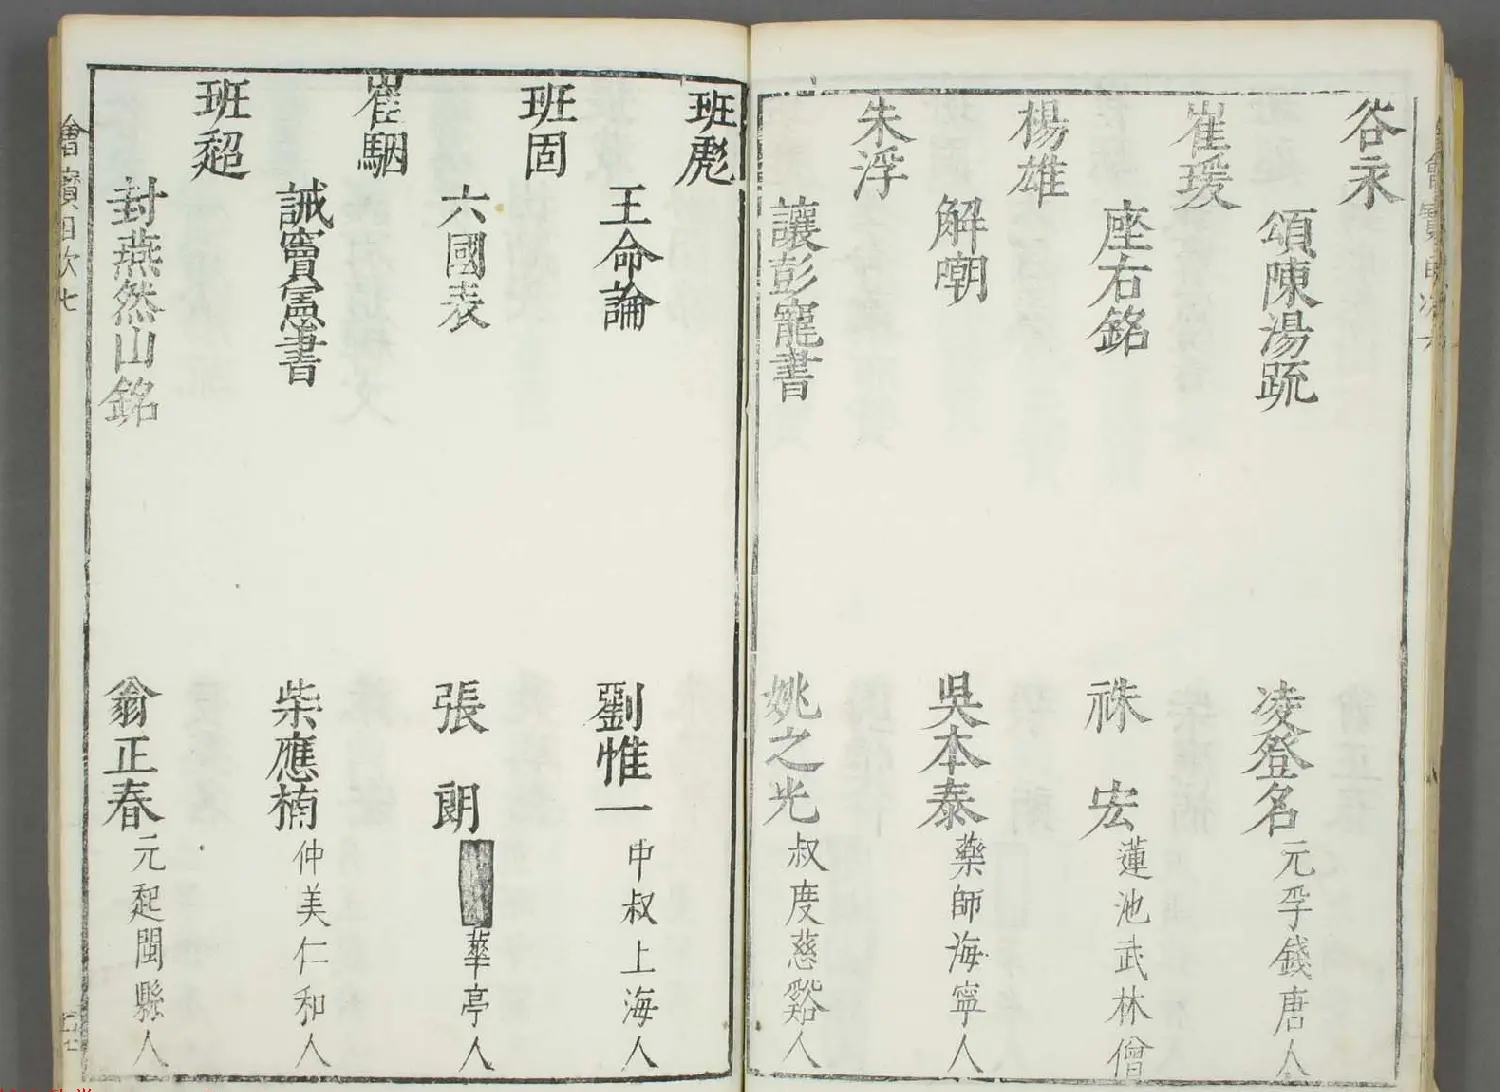 谷永
頌陳湯䟽 凌登名 元孚錢唐人
崔瑗
座右銘 祩宏 蓮池武林僧
楊雄
解嘲 吳本泰 藥師海寧人
朱浮
讓彭寵書 姚之光 叔度慈谿人
班彪
王命論 劉惟一 中叔上海人
班固
六國表 張朗 華亭人
崔駰
誡竇憲書 柴應楠 仲美仁和人
班超
封燕然山銘 翁正春 元起閩縣人